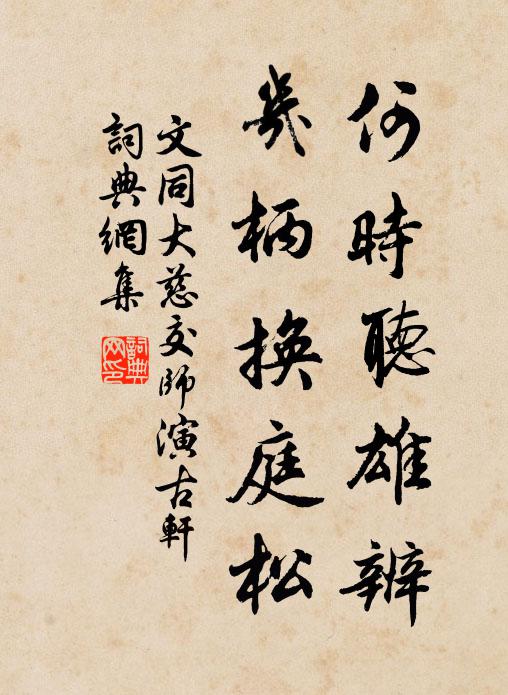 何時聽雄辨
幾柄換庭松
文同大慈交師演古軒
詞典網集
詞典网印